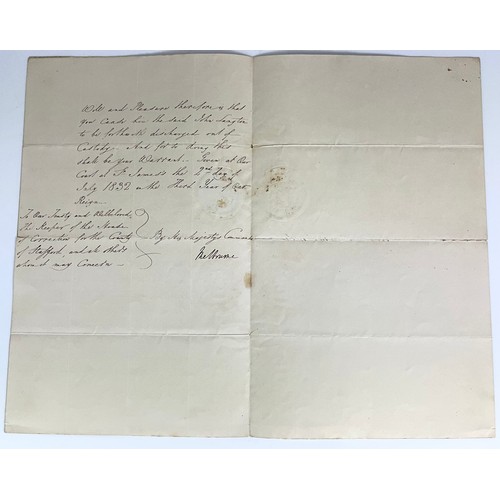 Will and Pleasure therefore, is that
you cause him the said John Langton
to be forthwith discharged out of
Custody. And for so doing this
shall be your Warrant. Given at Our
Court at St. James's the 2nd day of
July 1832 in the Third Year of Our
Reign.
To Our Trusty and Wellbeloved,
The Keeper of the House
of Correction for the County
of Stafford, and all others
whom it may Concern
By His Majesty's Command
Melbourne